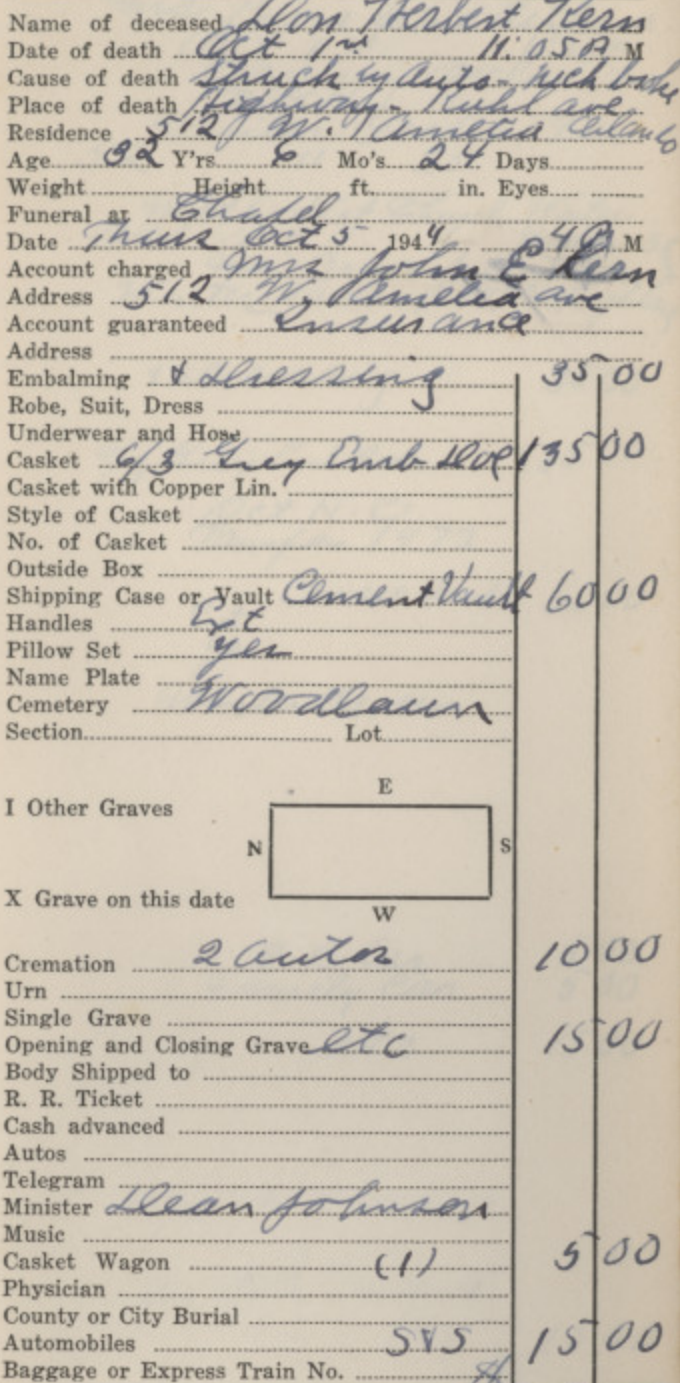 Name of deceased Don Herbert Kern
Date of death Oct 1st 11:05 A M
Cause of death Struck by auto - neck broke
Place of death Highway - Kuhl ave
Residence 512 W. Amelia Orlando
Age 32 Y'rs 6 Mo's 24 Days
Weight Height ft. in. Eyes
Funeral at Chapel
Date Thurs Oct 5 1944 4 P M
Account charged Mrs John E Kern
Address 512 W. Amelia ave
Account guaranteed Insurance
Address
Embalming & Dressing 35 00
Robe, Suit, Dress
Underwear and Hose
Casket 6/3 Grey Emb 135 00
Casket with Copper Lin.
Style of Casket
No. of Casket
Outside Box
Shipping Case or Vault Cement Vault 60 00
Handles Ext
Pillow Set yes
Name Plate
Cemetery Woodlawn
Section Lot
E
I Other Graves
N S
X Grave on this date
W
Cremation 2 autos 10 00
Urn
Single Grave
Opening and Closing Grave etc 15 00
Body Shipped to
R. R. Ticket
Cash advanced
Autos
Telegram
Minister Dean Johnson
Music
Casket Wagon (1) 5 00
Physician
County or City Burial
Automobiles 15 00
Baggage or Express Train No.